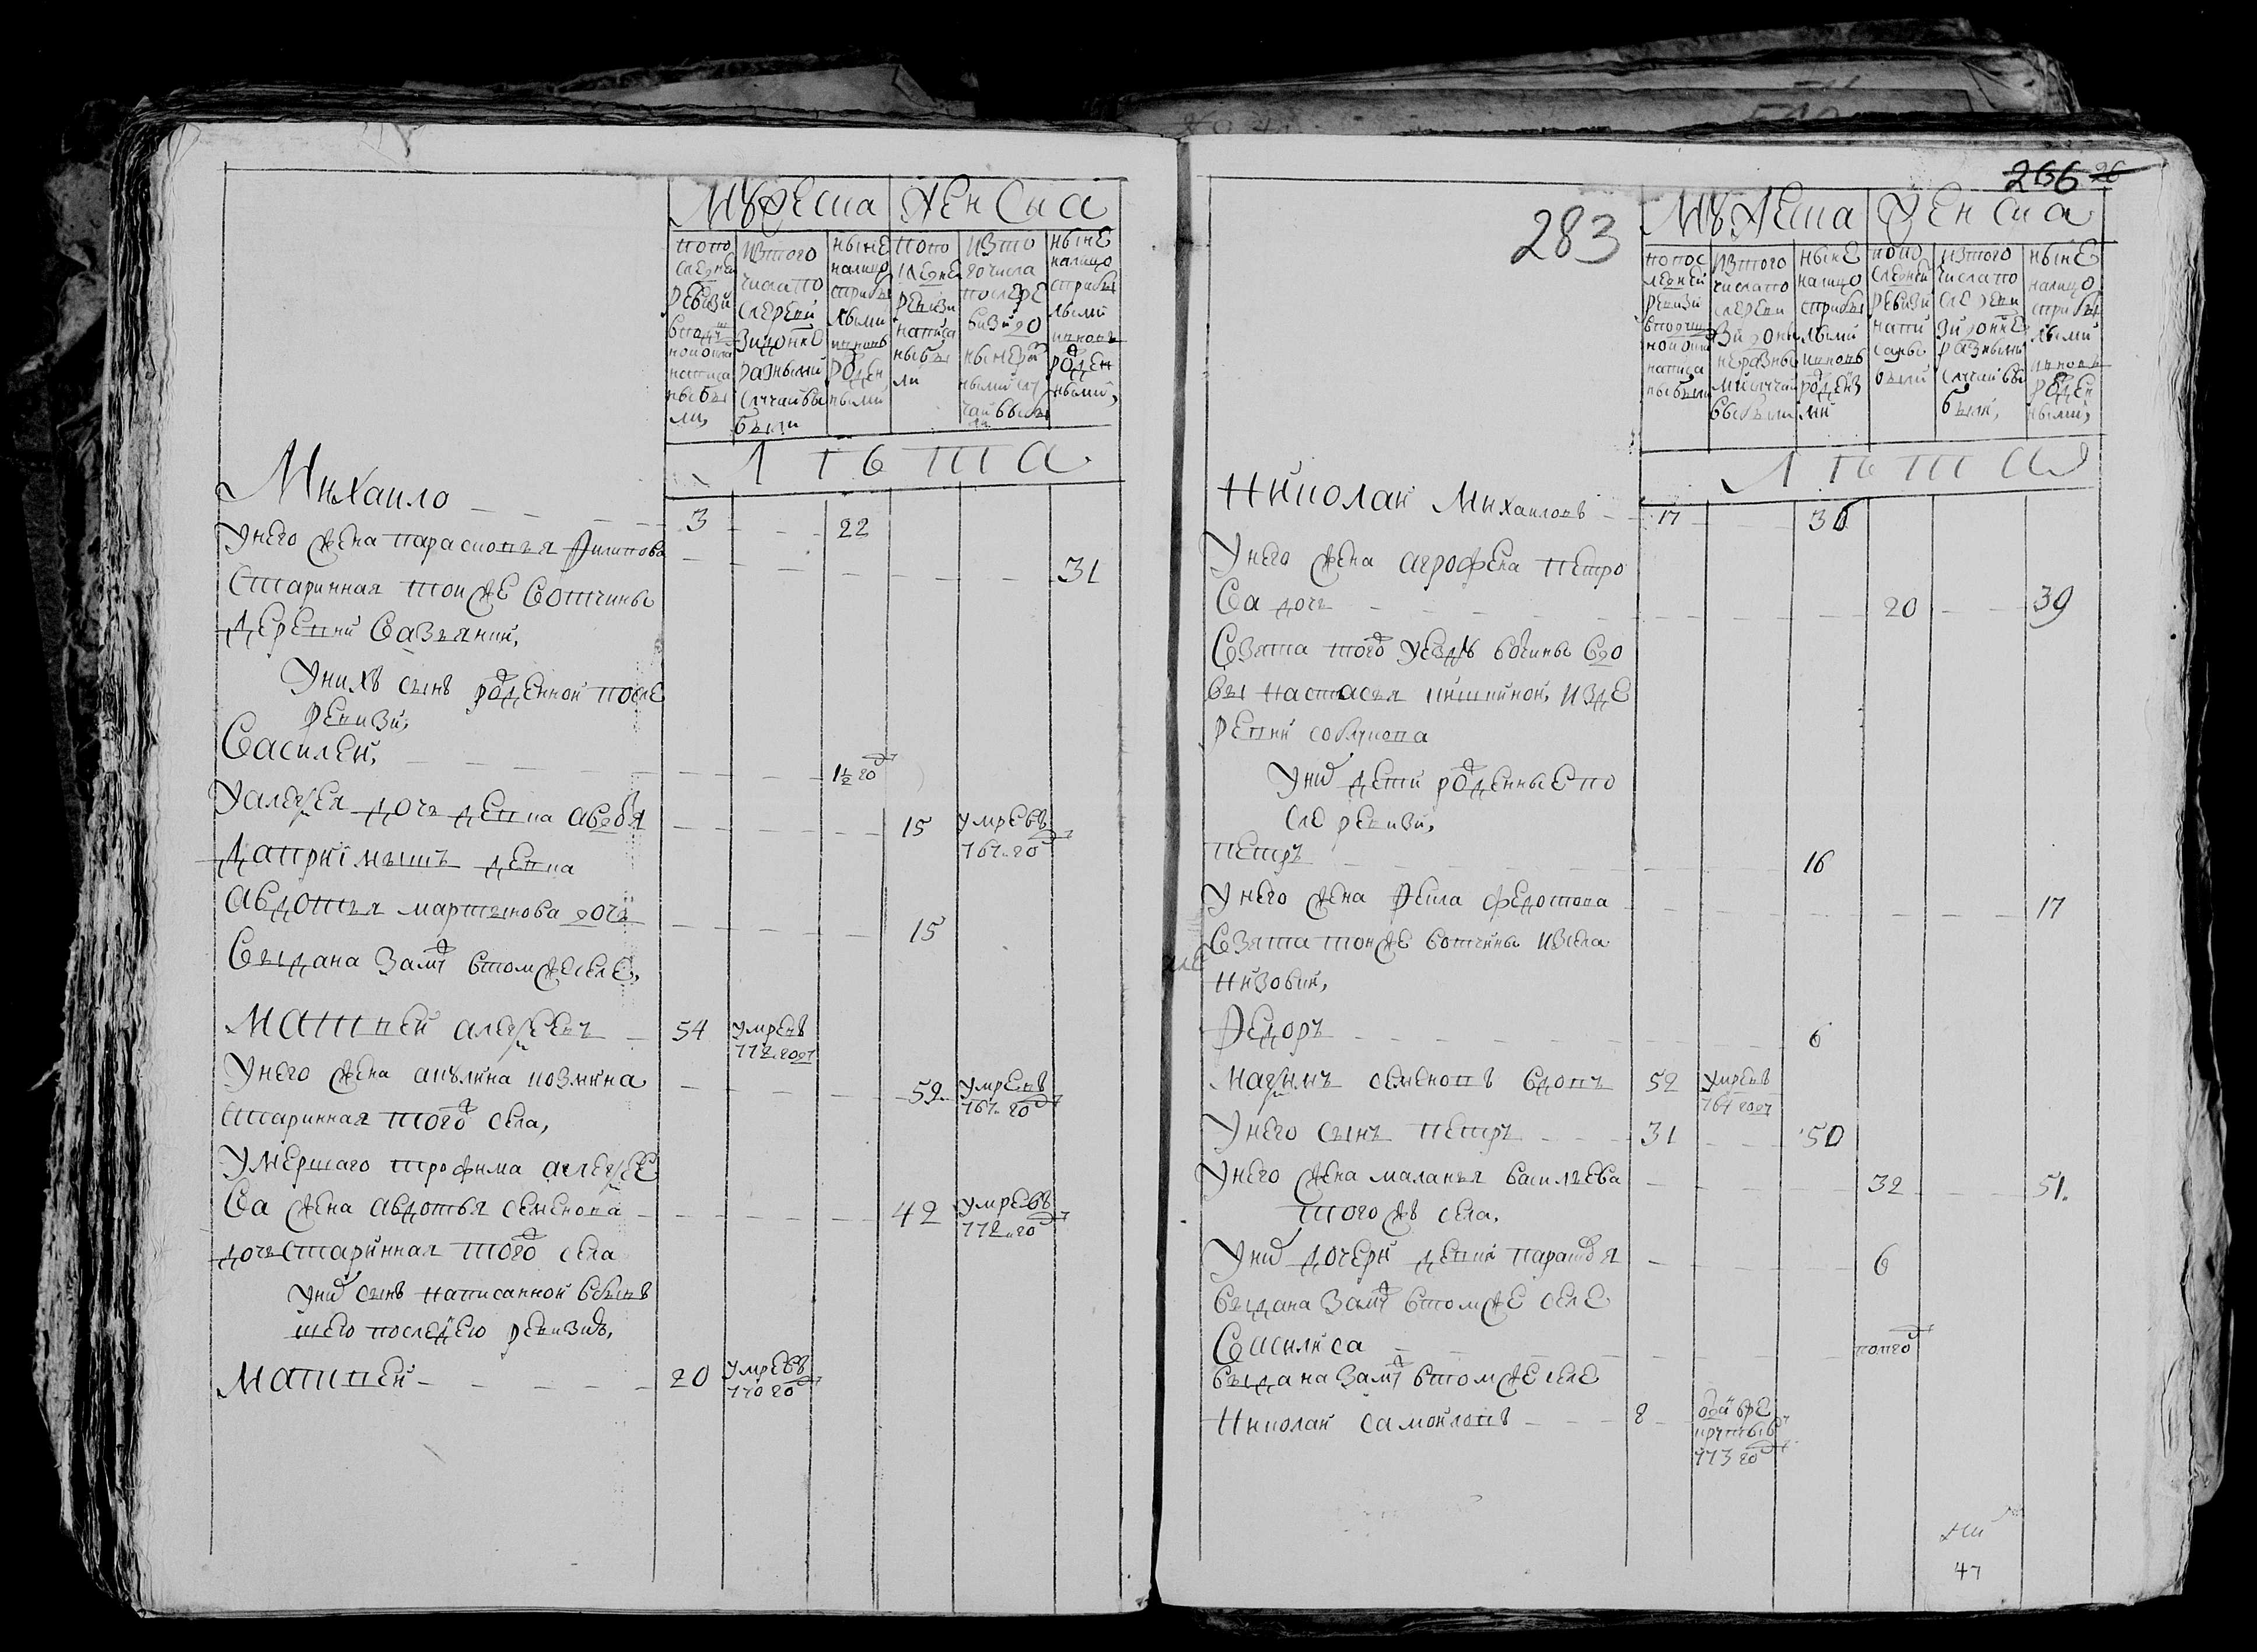 Мужеска Женска
попо
следней
ревизи
вподуш
ном окла
написа
ны бы
ли,
изтого
числа по
следней
ревизи до ныне
разными
случаи вы
были
ныне
налицо
сприбы
лыми
и вновь
рожден
ными
попо
следне
ревизи
написа
ны бы
ли
изто
го числа
после ре
визи до
ныне раз
ными слу
чаи выбы
ли
ныне
налицо
сприбы
лыми
и вновь
рожден
ными,
Лѣта
Михаило 3 22
У него жена парасковья Филипова 31
Старинная той же вотчины
деревни
У них сынъ рожденной после
ревизи,
Василей, 1½ го
У алексея дочь девка авдотья 15 умре въ
767 го
Да приімышъ девка
Авдотья мартынова дочь 15
Выдана замуж в том же селе,
Матвей алексеевъ 54 умре въ
772 году
У него жена акулина козмина 52 умре въ
767 го
Старинная того ж села,
Умершаго трофима алексее
ва жена авдотья семенова 42 умре въ
772 го
дочь Старинная того ж села
У ней сынъ написанной в быв
шею последнею ревизию,
Матвей 20 умре въ
770 го
266 26
283
Мужеска Женска
попос
ледней
ревизи
вподуш
ном окла
написа
ны были
изтого
числа по
следней
ревизи до ны
не разны
ми случаи
выбыли
ныне
налицо
сприбы
лыми
и вновь
рожден
ми
попо
следней
ревизи
напи
саны
были
изтого
числа по
сле реви
зи до ныне
разными
случаи вы
были,
ныне
налицо
сприбы
лыми
и вновь
рожден
ными,
Лѣта
Николай Михаиловъ 17 36
У него жена агрофена петро
ва дочь 20 39
Взята того ж уезду вотчины вдо
вы настасьи из де
ревни
У них дети рожденные по
сле ревизи,
петръ 16
У него жена Фекла федотова 17
Взята той же вотчины из села
низовки,
Федоръ 6
Максимъ семеновъ вдовъ 52 умре въ
764 году
У него сынъ петръ 31 50
У него жена маланья васильева 32 51.
того ж села,
У них дочери девки парасковья 6
выдана замуж в том же селе
Василиса полго
выдана замуж в том же селе
Николай самойловъ 8 отдан в ре
круты в
773 го
47